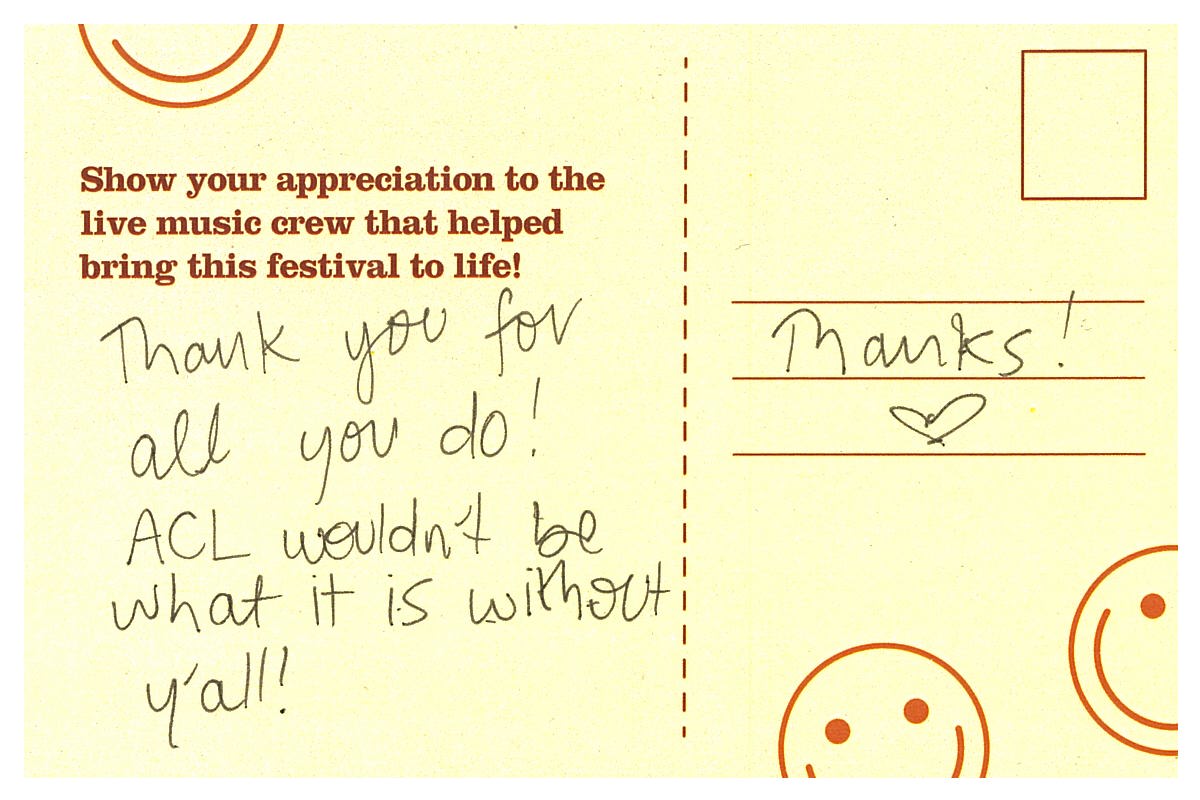 Show your appreciation to the
live music crew that helped
bring this festival to life!
Thank you for
all you do!
ACL wouldn't be
what it is without
y'all!
Thanks!